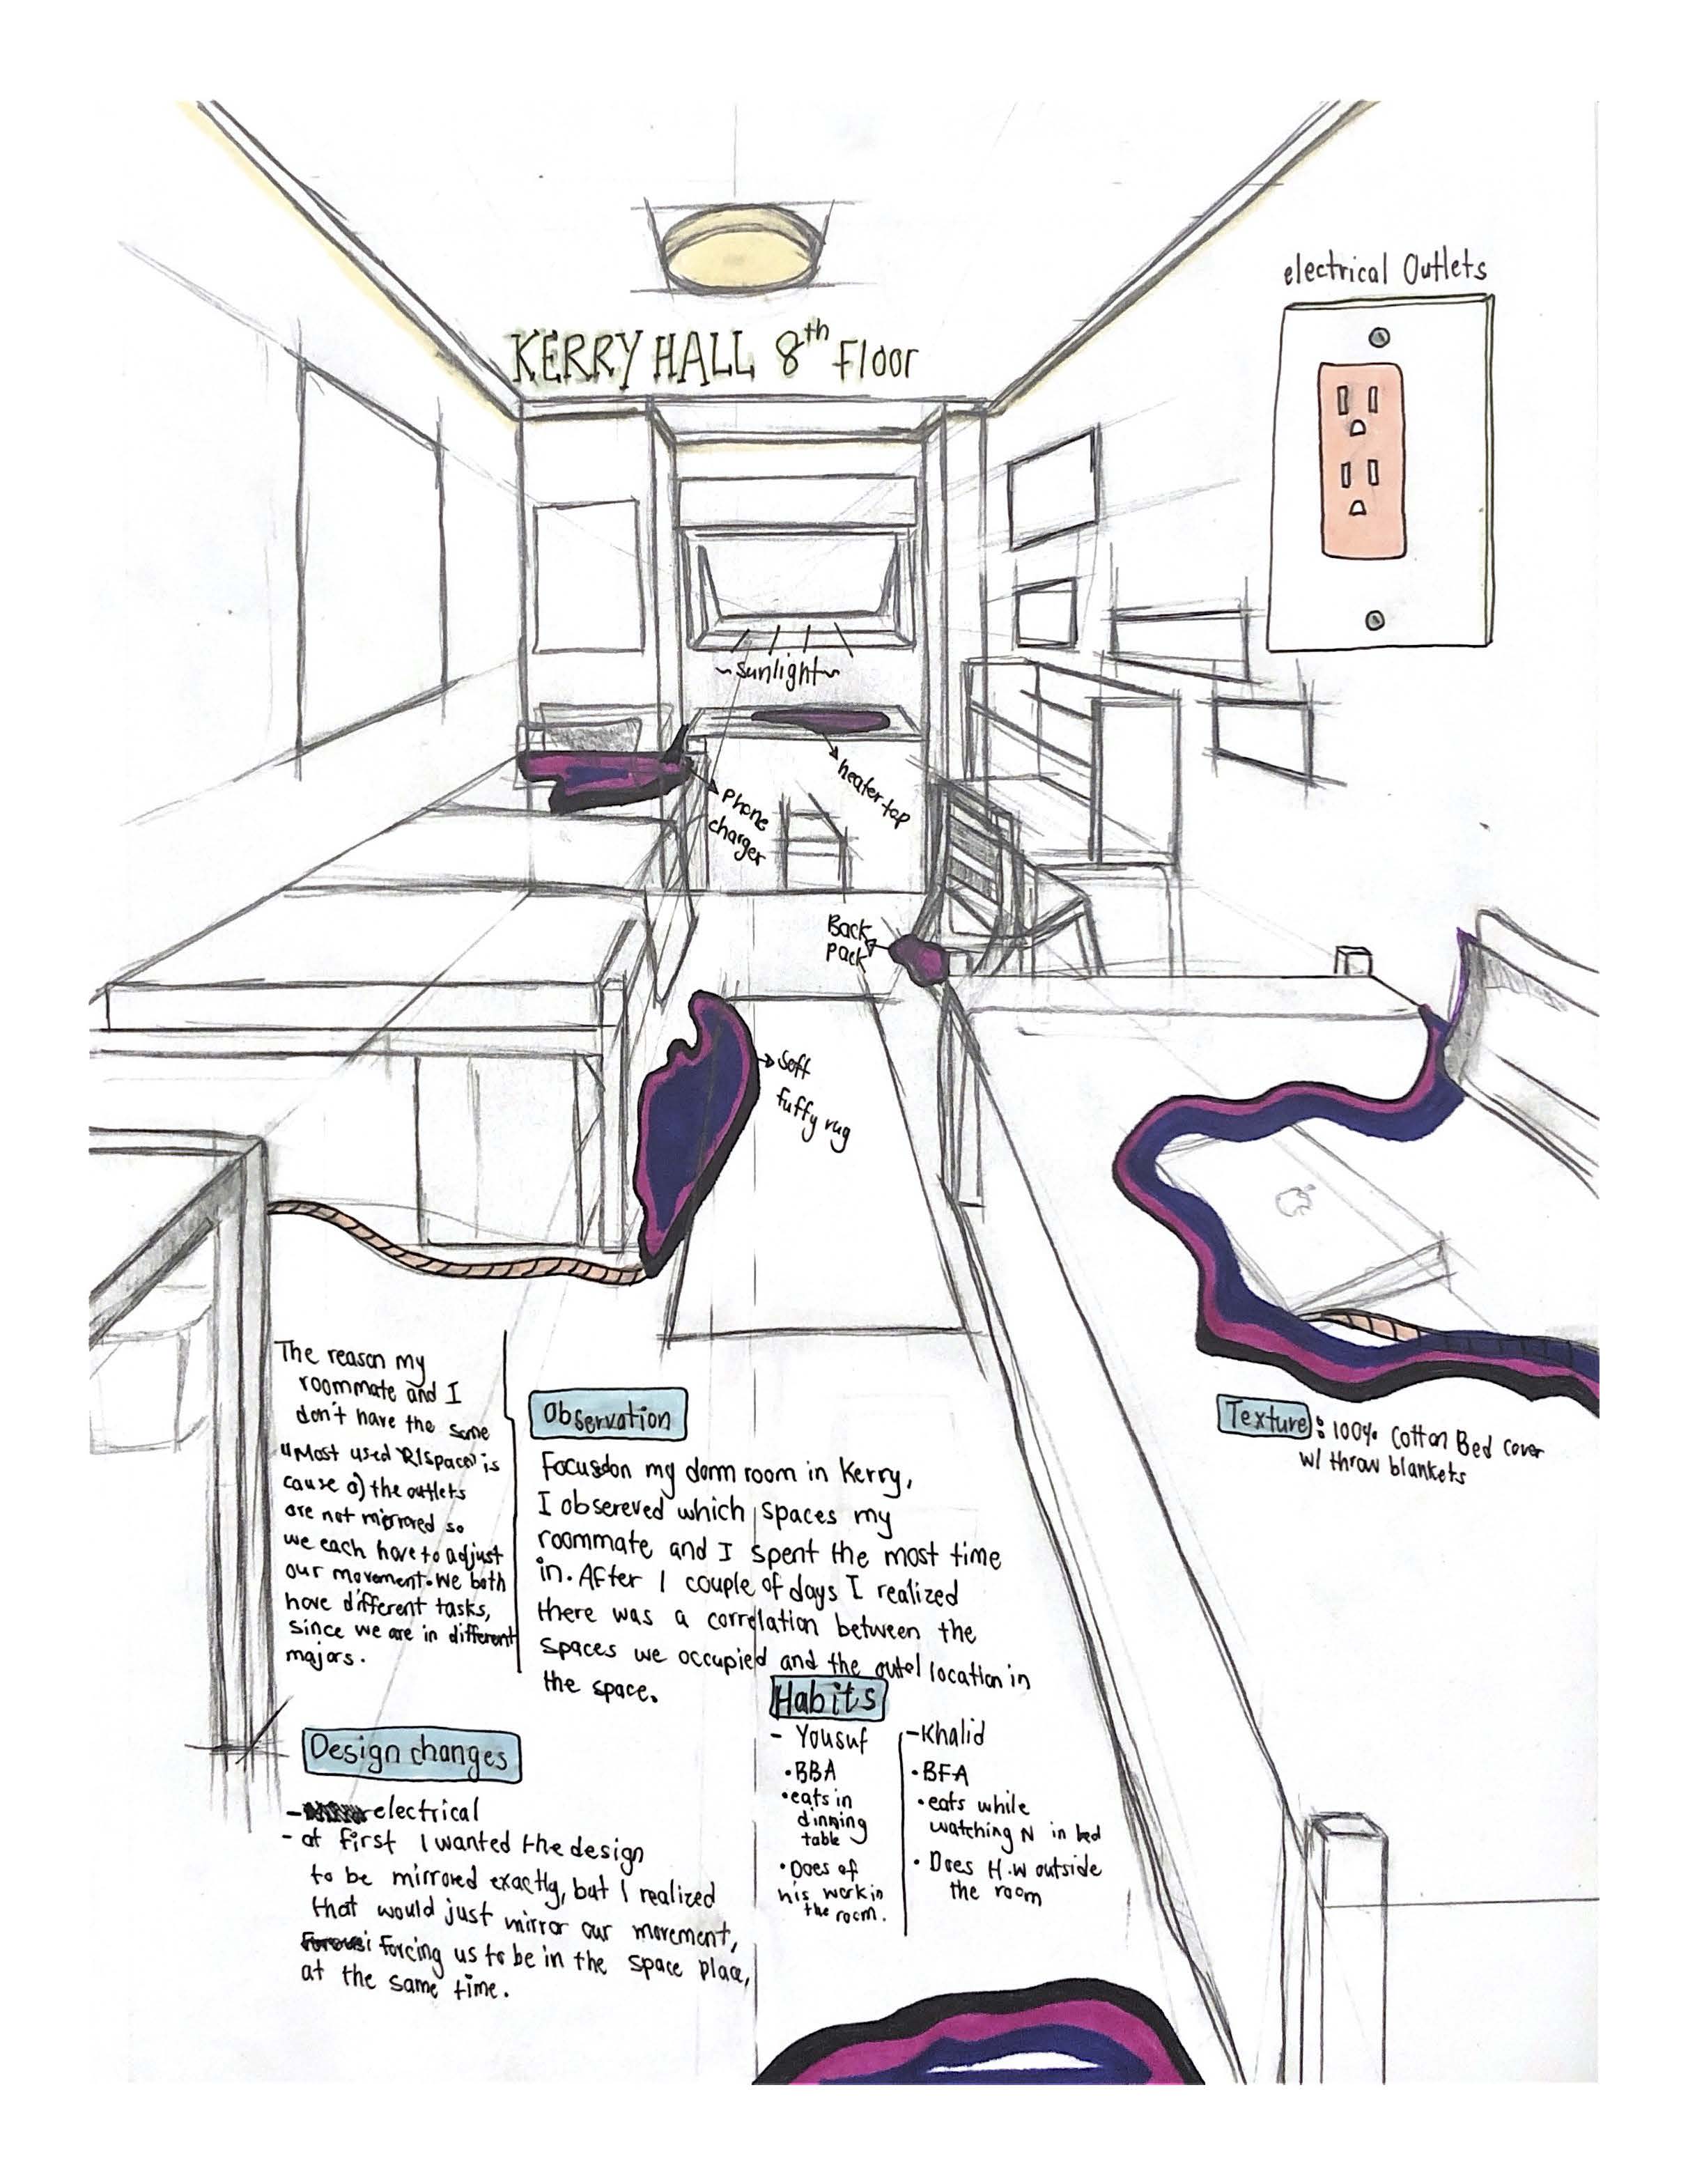 electrical Outlets
KERRY HALL 8th Floor
~sunlight~
heater top
Phone
charger
Back
pack
Soft
fuffy rug
The reason my
roommate and I
don't have the same
"Most used space" is
cause a) the outlets
are not mirrored so
we each have to adjust
our movement. We both
have different tasks,
since we are in different
majors.
Observation
Focusdon my dorm room in Kerry,
I obsereved which spaces my
roommate and I spent the most time
in. After 1 couple of days I realized
there was a correlation between the
spaces we occupied and the outel location in
the space.
Texture: 100% Cotton Bed cover
w/ throw blankets
Habits
- Yousuf
• BBA
• eats in
dinning
table
• Does of
his work in
the room.
- Khalid
• BFA
• eats while
watching N in bed
• Does H.W outside
the room
Design changes
- electrical
- at first I wanted the design
to be mirrored exactly, but I realized
that would just mirror our movement,
forcing us to be in the space place,
at the same time.